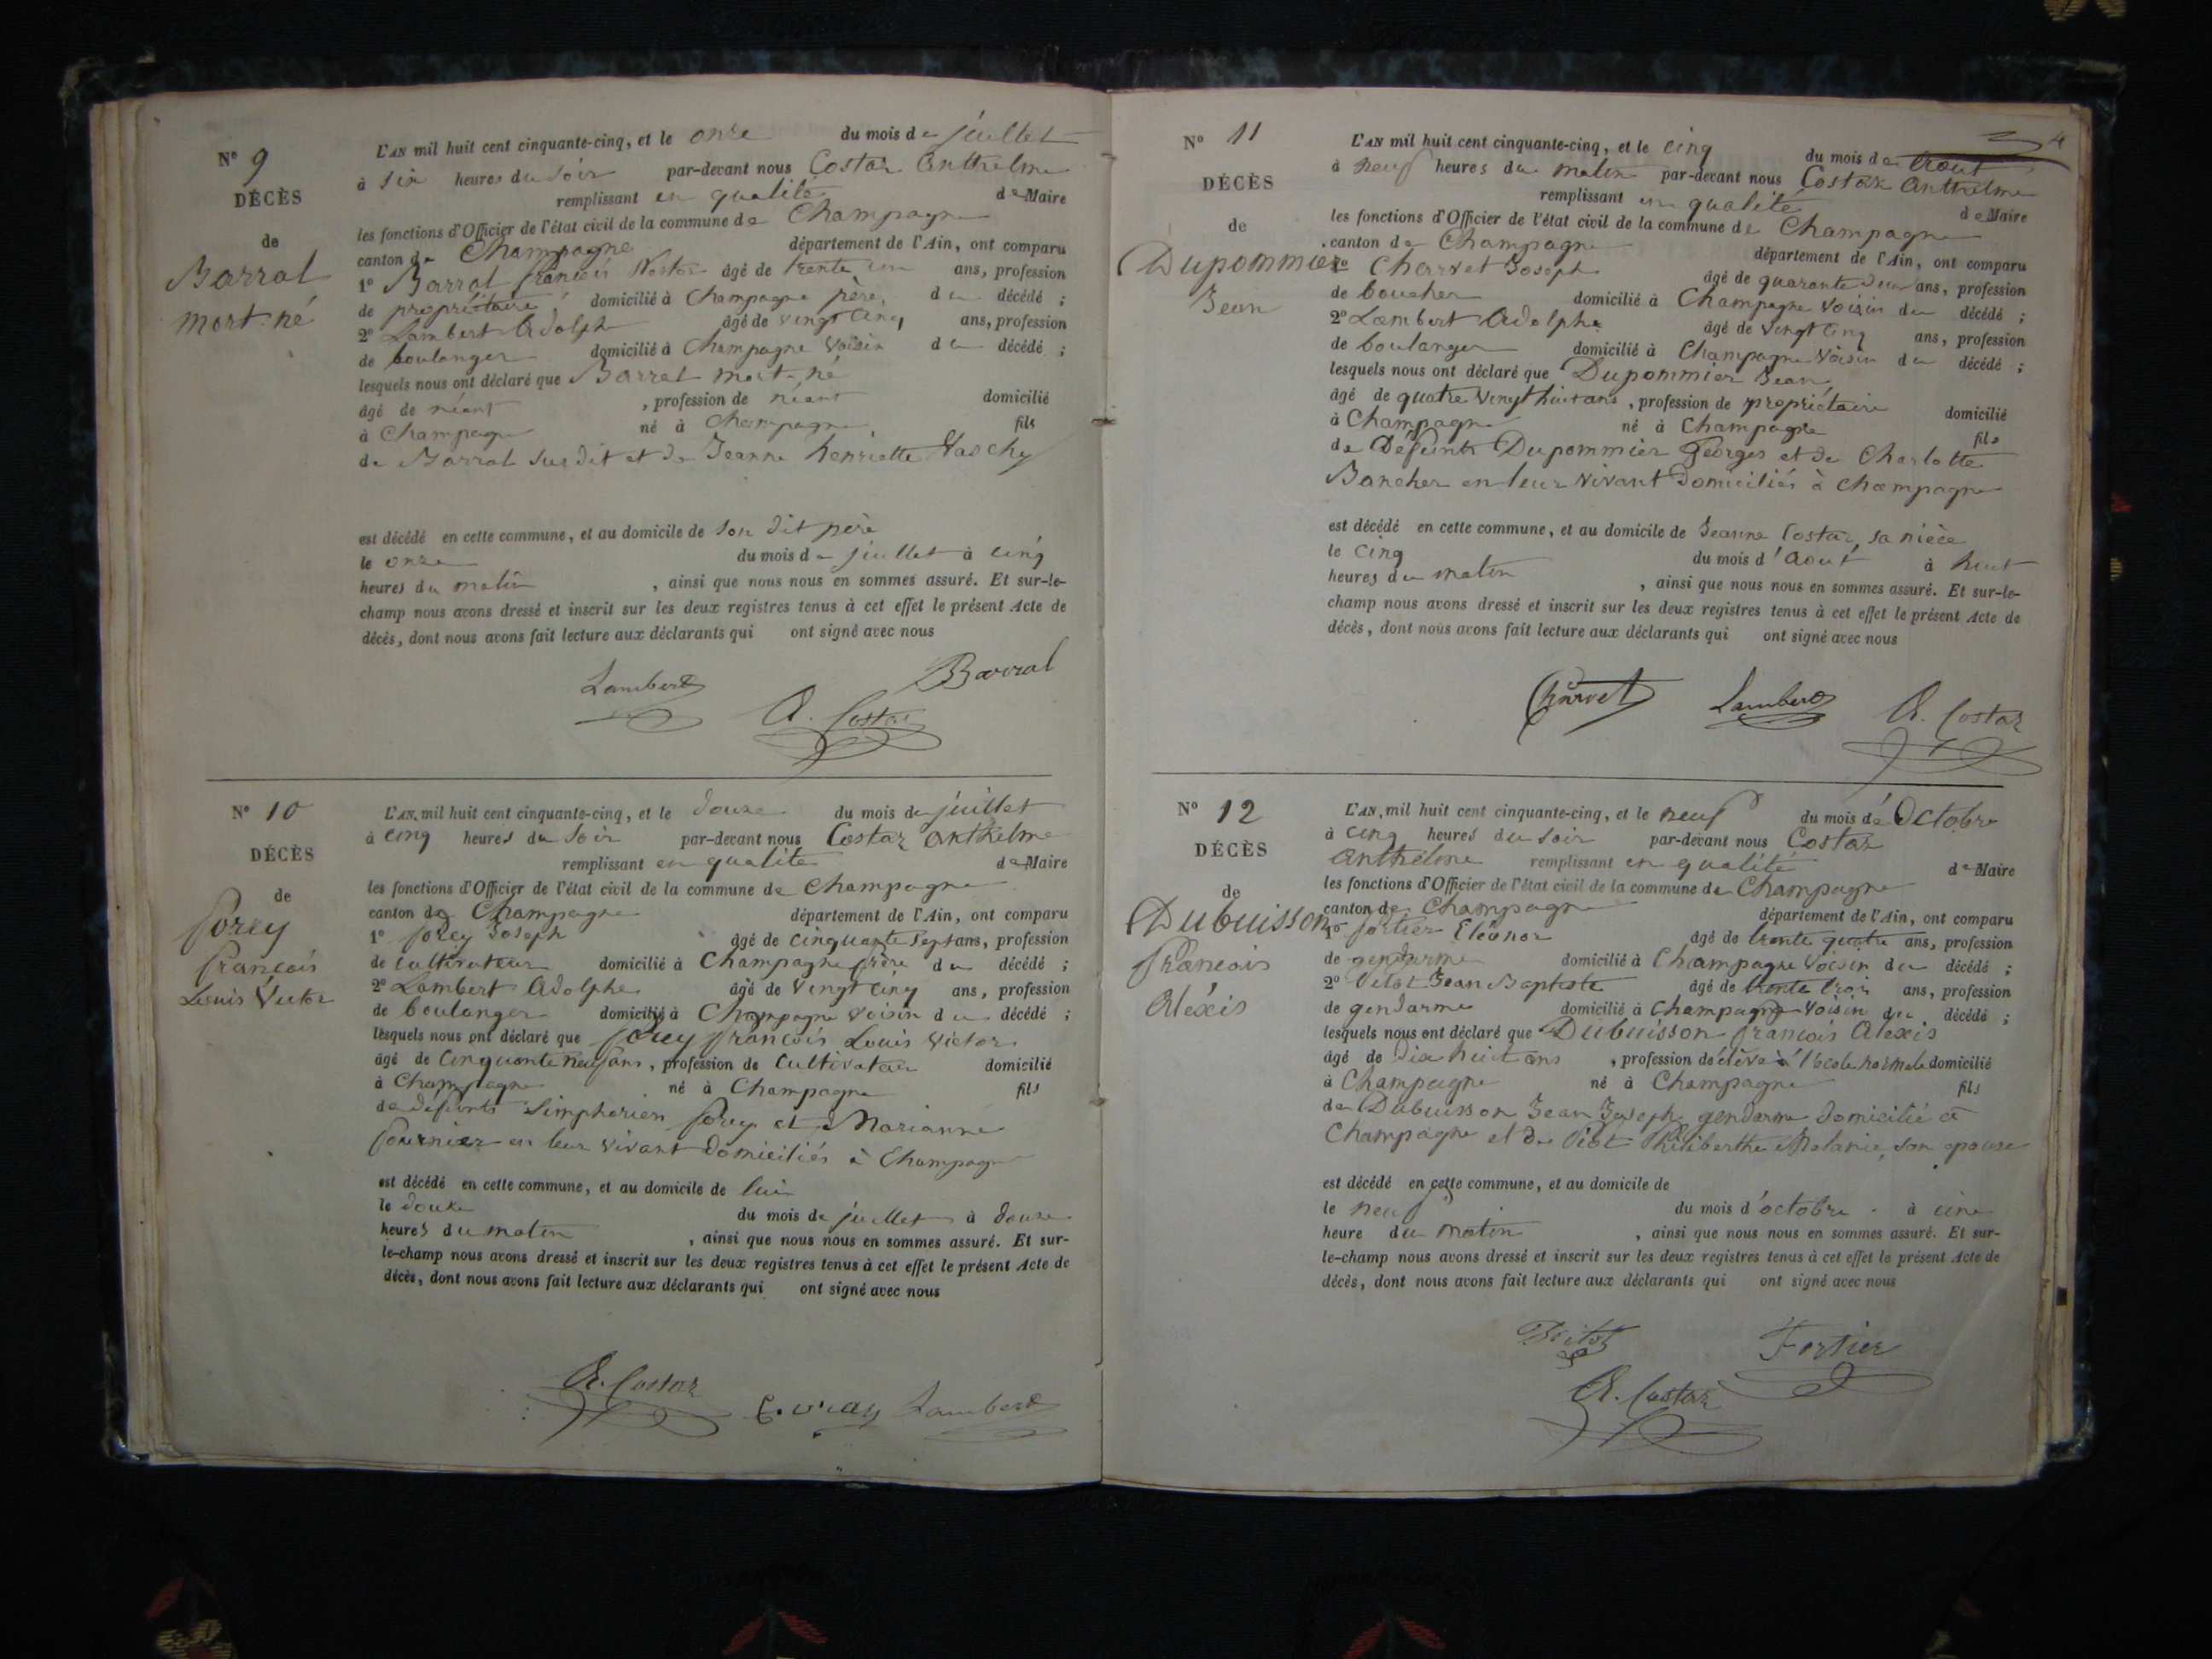 N° 9
DÉCÈS
de
Barral
mort-né
L'AN mil huit cent cinquante-cinq, et le onze du mois de juillet
à six heures du soir par-devant nous Costaz Anthelme
remplissant en qualité de Maire
les fonctions d'Officier de l'état civil de la commune de Champagne
canton de Champagne département de l'Ain, ont comparu
1° Barral françois Nestor âgé de trente un ans, profession
de propriétaire domicilié à Champagne père, du décédé ;
2° Lambert Adolphe âgé de vingt cinq ans, profession
de boulanger domicilié à Champagne voisin du décédé ;
lesquels nous ont déclaré que Barral mort-né
âgé de néant , profession de néant domicilié
à Champagne né à Champagne fils
de Barral susdit et de Jeanne henriette
est décédé en cette commune, et au domicile de son dit père
le onze du mois de juillet à cinq
heures du matin , ainsi que nous nous en sommes assuré. Et sur-le-
champ nous avons dressé et inscrit sur les deux registres tenus à cet effet le présent Acte de
décès, dont nous avons fait lecture aux déclarants qui ont signé avec nous
Lambert Barral
A. Costaz
N° 10
DÉCÈS
de
françois
Louis Victor
L'AN mil huit cent cinquante-cinq, et le douze du mois de juillet
à cinq heures du soir par-devant nous Costaz Anthelme
remplissant en qualité de Maire
les fonctions d'Officier de l'état civil de la commune de Champagne
canton de Champagne département de l'Ain, ont comparu
1° Joseph âgé de cinquante sept ans, profession
de cultivateur domicilié à Champagne frère du décédé ;
2° Lambert Adolphe âgé de vingt cinq ans, profession
de boulanger domicilié à Champagne voisin du décédé ;
lesquels nous ont déclaré que françois Louis Victor
âgé de cinquante neuf ans, profession de cultivateur domicilié
à Champagne né à Champagne fils
de défunts Simphorien et Marianne
fournier en leur vivant domiciliés à Champagne
est décédé en cette commune, et au domicile de lui
le douze du mois de juillet à douze
heures du matin , ainsi que nous nous en sommes assuré. Et sur-
le-champ nous avons dressé et inscrit sur les deux registres tenus à cet effet le présent Acte de
décès, dont nous avons fait lecture aux déclarants qui ont signé avec nous
A. Costaz Lambert
4
N° 11
DÉCÈS
de
Dupommier
Jean
L'AN mil huit cent cinquante-cinq, et le cinq du mois de
à neuf heures du matin par-devant nous Costaz Anthelme
remplissant en qualité de Maire
les fonctions d'Officier de l'état civil de la commune de Champagne
canton de Champagne département de l'Ain, ont comparu
Charvet Joseph âgé de quarante deux ans, profession
de boucher domicilié à Champagne voisin du décédé ;
2° Lambert Adolphe âgé de vingt cinq ans, profession
de boulanger domicilié à Champagne voisin du décédé ;
lesquels nous ont déclaré que Dupommier Jean
âgé de quatre vingt huit ans, profession de propriétaire domicilié
à Champagne né à Champagne fils
de Défunts Dupommier Georges et de Charlotte
en leur vivant domiciliés à Champagne
est décédé en cette commune, et au domicile de Jeanne Costaz, sa nièce
le cinq du mois d'aout à huit
heures du matin , ainsi que nous nous en sommes assuré. Et sur-le-
champ nous avons dressé et inscrit sur les deux registres tenus à cet effet le présent Acte de
décès, dont nous avons fait lecture aux déclarants qui ont signé avec nous
Charvet Lambert A. Costaz
N° 12
DÉCÈS
de
Dubuisson
françois
Alexis
L'AN mil huit cent cinquante-cinq, et le neuf du mois de Octobre
à cinq heures du soir par-devant nous Costaz
Anthelme remplissant en qualité de Maire
les fonctions d'Officier de l'état civil de la commune de Champagne
canton de Champagne département de l'Ain, ont comparu
1° fortier Eléonor âgé de trente quatre ans, profession
de gendarme domicilié à Champagne voisin du décédé ;
2° Jean Baptiste âgé de trente trois ans, profession
de gendarme domicilié à Champagne voisin du décédé ;
lesquels nous ont déclaré que Dubuisson françois Alexis
âgé de dix huit ans , profession de élève à l'école normale domicilié
à Champagne né à Champagne fils
de Dubuisson Jean Joseph gendarme domicilié à
Champagne et de Philiberthe Melanie, son épouse
est décédé en cette commune, et au domicile de
le neuf du mois d'octobre à une
heure du matin , ainsi que nous nous en sommes assuré. Et sur-
le-champ nous avons dressé et inscrit sur les deux registres tenus à cet effet le présent Acte de
décès, dont nous avons fait lecture aux déclarants qui ont signé avec nous
Fortier
A. Costaz